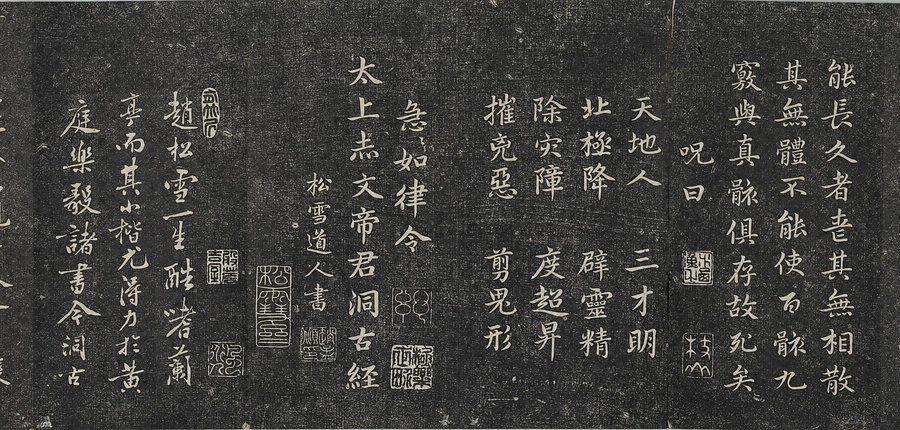 能長久者喪其無相散
其無體不能使百骸九
竅與真骸俱存故死矣
呪曰
天地人　三才明
北極降　辟靈精
除灾障　度超昇
摧兇惡　剪鬼形
急〻如律令
太上赤文帝君洞古經
松雪道人書
松雪齋
趙松雪一生酷嗜蘭
亭而其小楷尤得力於黄
庭樂毅諸書今洞古